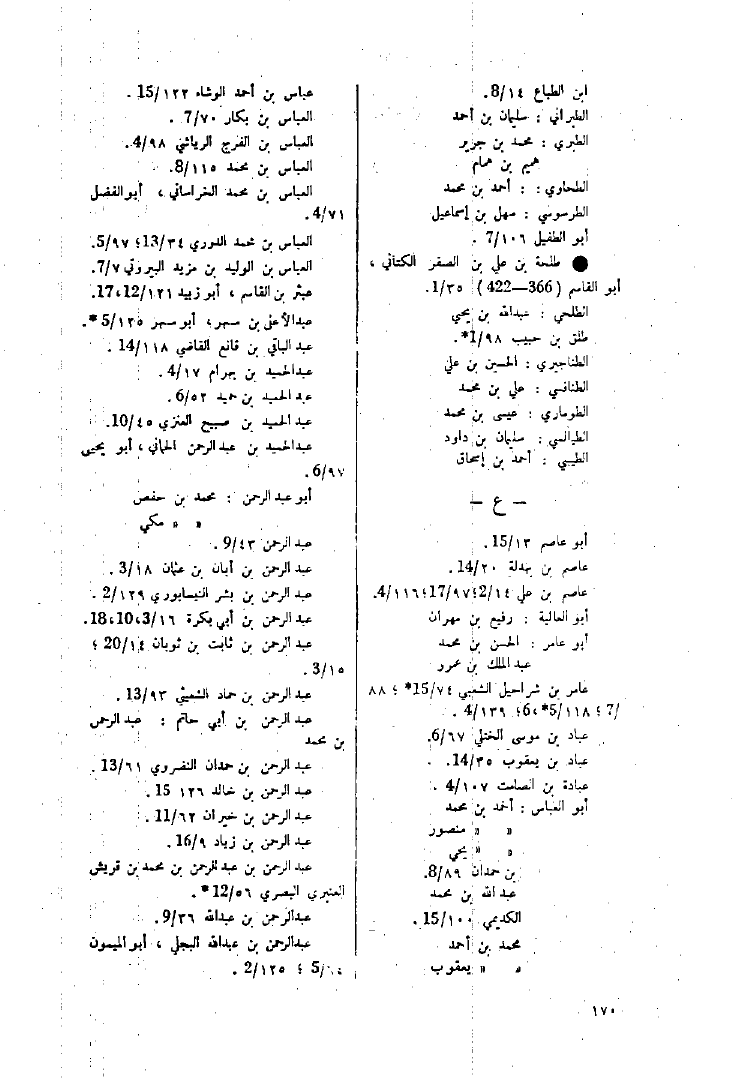 ابن الطباع ١٤/8.
الطبراني : سليمان بن أحمد
الطبري : محمد بن جرير
هميم بن همام
الطحاوي : : أحمد بن محمد
الطرسوسي : سهل بن إسماعيل
أبو الطفيل ١٠٦/7 .
● طلحة بن علي بن الصقر الكتاني ،
أبو القاسم (366—422) ٣٥/1.
الطلحي : عبدالله بن يحي
طلق بن حبيب ٩٨/1*.
الطناجيري : الحسين بن علي
الطنافسي : علي بن محمد
الطوماري : عيسى بن محمد
الطيالسي : سليمان بن داود
الطيبي : أحمد بن إسحاق
– ع –
أبو عاصم ١٣/15.
عاصم بن بهدلة ٢٠/14.
عاصم بن علي ١٤/2؛٩٧/17؛١١٦/4.
أبو العالية : رفيع بن مهران
أبو عامر : الحسن بن محمد
عبد الملك بن عمرو
عامر بن شراحيل الشعبي ٧٤/15* ؛ ٨٨
/7 ؛ ١١٨/5*،6؛ ١٣٩/4 .
عباد بن موسى الختلي ٦٧/6.
عباد بن يعقوب ٣٥/14.
عبادة بن الصامت ١٠٧/4 .
أبو العباس : أحمد بن محمد
» » منصور
» » يحي
بن حمدان ٨٩/8.
عبد الله بن محمد
الكديمي ١٠٠/15.
محمد بن أحمد
» » يعقوب
عباس بن أحمد الوشاء ١٢٢/15 .
العباس بن بكار ٧٠/7 .
العباس بن الفرج الرياشي ٩٨/4.
العباس بن محمد ١١٥/8.
العباس بن محمد الخراساني ، أبوالفضل
٧١/4.
العباس بن محمد الدوري ٣٤/13؛ ٩٧/5.
العباس بن الوليد بن مزيد البيروتي ٧/7.
عبثر بن القاسم ، أبو زبيد ١٢١/12،17.
عبدالأعلى بن مسهر، أبو مسهر ١٢٥/5*.
عبد الباقي بن قانع القاضي ١١٨/14 .
عبدالحميد بن بهرام ١٧/4 .
عبد الحميد بن حميد ٥٢/6.
عبد الحميد بن صبيح العنزي ٤٥/10.
عبدالحميد بن عبدالرحمن الحماني ، أبو يحيى
٩٧/6.
أبو عبدالرحمن : محمد بن حفص
» » مكي
عبد الرحمن ٤٣/9 .
عبد الرحمن بن أبان بن عثمان ١٨/3 .
عبد الرحمن بن بشر النيسابوري ١٢٩/2 .
عبد الرحمن بن أبي بكرة ١٦/3،10،18.
عبد الرحمن بن ثابت بن ثوبان ١٤/20 ؛
١٥/3 .
عبد الرحمن بن حماد الشعيثي ٩٣/13 .
عبد الرحمن بن أبي حاتم : عبد الرحمن
بن محمد
عبد الرحمن بن حمدان النصروي ٦١/13 .
عبد الرحمن بن خالد ١٢٦ 15 .
عبد الرحمن بن خيران ٦٢/11 .
عبد الرحمن بن زياد ٩/16 .
عبد الرحمن بن عبدالرحمن بن محمد بن قريش
العنبري البصري ٥٦/12*.
عبدالرحمن بن عبدالله ٣٦/9.
عبدالرحمن بن عبدالله البجلي ، أبو الميمون
/5 ؛ ١٢٥/2 .
١٧٠